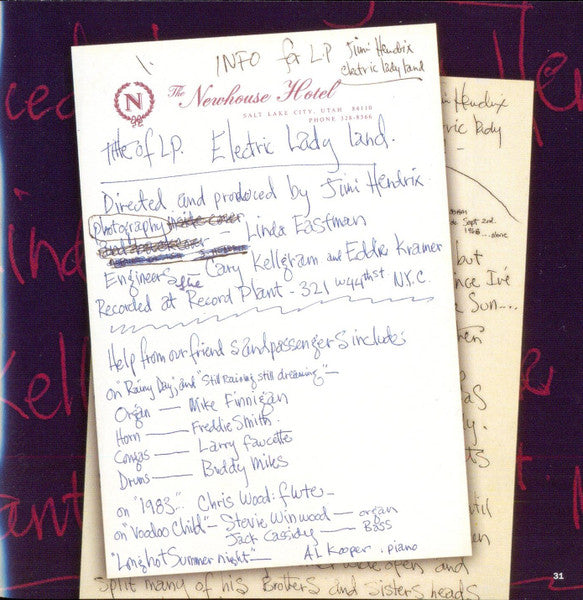 INFO for LP Jimi Hendrix
electric lady land
N
The Newhouse Hotel
SALT LAKE CITY, UTAH 84110
PHONE 328-8366
title of LP. Electric Lady Land.
Directed and produced by Jimi Hendrix
photography inside cover
and back cover — Linda Eastman
Engineers — Gary Kellgram and Eddie Kramer
Recorded at Record Plant - 321 W 44th st N.Y.C.
Help from our friends and passengers include:
on "Rainy Day," and "Still Raining still dreaming" —
Organ — Mike Finnigan
Horn — Freddie Smith.
Congas — Larry faucette
Drums — Buddy Miles
on "1983" Chris Wood: flute —
on "Voodoo Child" — Stevie Winwood — organ
Jack Cassidy — Bass
"Long hot Summer night" — Al Kooper . piano
Hendrix
ric lady
Sept 2nd.
1968
...alone
but
nce I've
e Sun...
ren
as
y.
ts
til
wide open and
split many of his Brothers and sisters heads
31